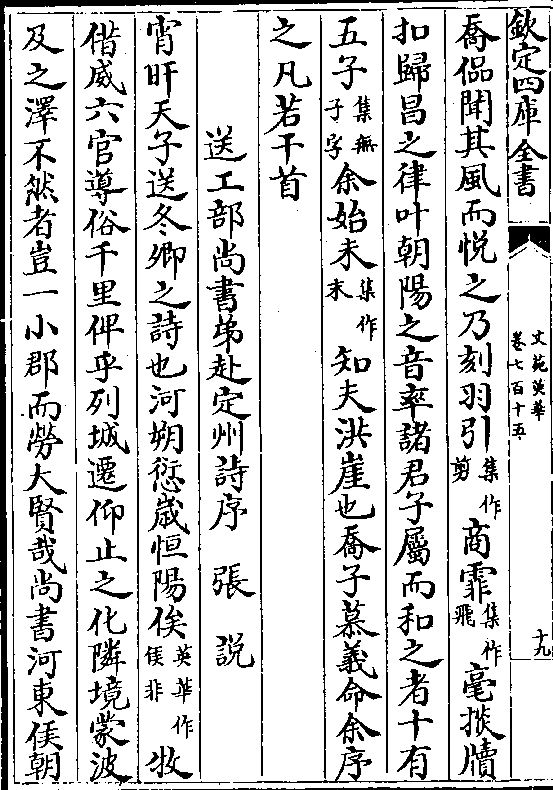 欽定四庫全書
文苑英華
卷七百十五
十九
喬侣聞其風而悦之乃刻羽引集作剪商霏集作飛毫掞牘
扣歸昌之律叶朝陽之音率諸君子屬而和之者十有
五子集無子字余始未集作末知夫洪崖也喬子慕義命余序
之凡若干首
送工部尚書弟赴定州詩序 張説
宵旰天子送冬卿之詩也河朔愆歳恒陽俟英華作侯非牧
偕威六官導俗千里俾乎列城遷仰止之化隣境蒙波
及之澤不然者豈一小郡而勞大賢哉尚書河東侯朝